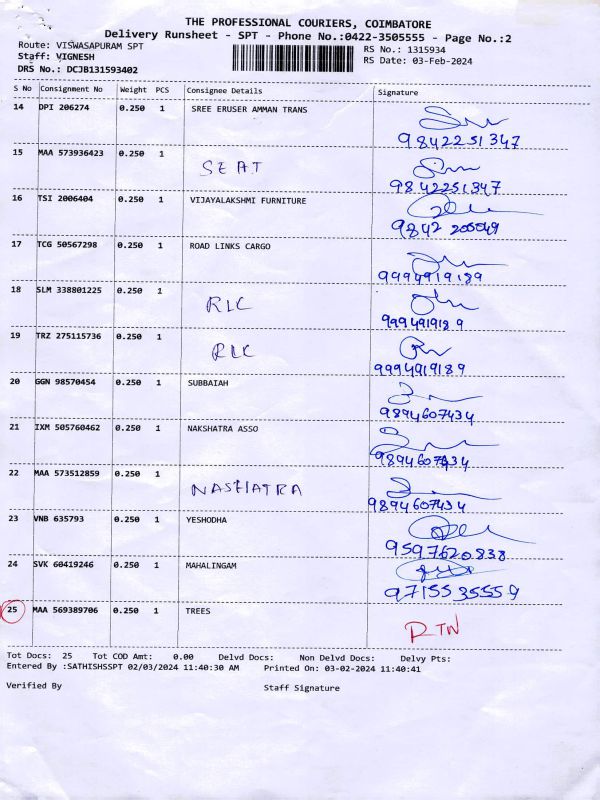 THE PROFESSIONAL COURIERS, COIMBATORE
Delivery Runsheet - SPT - Phone No.:0422-3505555 - Page No.:2
Route: VISWASAPURAM SPT RS No.: 1315934
Staff: VIGNESH RS Date: 03-Feb-2024
DRS No.: DCJB131593402
S No Consignment No Weight PCS Consignee Details Signature
14 DPI 206274 0.250 1 SREE ERUSER AMMAN TRANS
9842251347
15 MAA 573936423 0.250 1 SEAT
9842251347
16 TSI 2006404 0.250 1 VIJAYALAKSHMI FURNITURE
9842 205049
17 TCG 50567298 0.250 1 ROAD LINKS CARGO
9994919189
18 SLM 338801225 0.250 1 RLC
9994919189
19 TRZ 275115736 0.250 1 RLC
9994919189
20 GGN 98570454 0.250 1 SUBBAIAH
9894607434
21 IXM 505760462 0.250 1 NAKSHATRA ASSO
9894607434
22 MAA 573512859 0.250 1 NASHATRA
9894607434
23 VNB 635793 0.250 1 YESHODHA
9597620838
24 SVK 60419246 0.250 1 MAHALINGAM
9715535559
25 MAA 569389706 0.250 1 TREES
RTN
Tot Docs: 25 Tot COD Amt: 0.00 Delvd Docs: Non Delvd Docs: Delvy Pts:
Entered By :SATHISHSSPT 02/03/2024 11:40:30 AM Printed On: 03-02-2024 11:40:41
Verified By Staff Signature